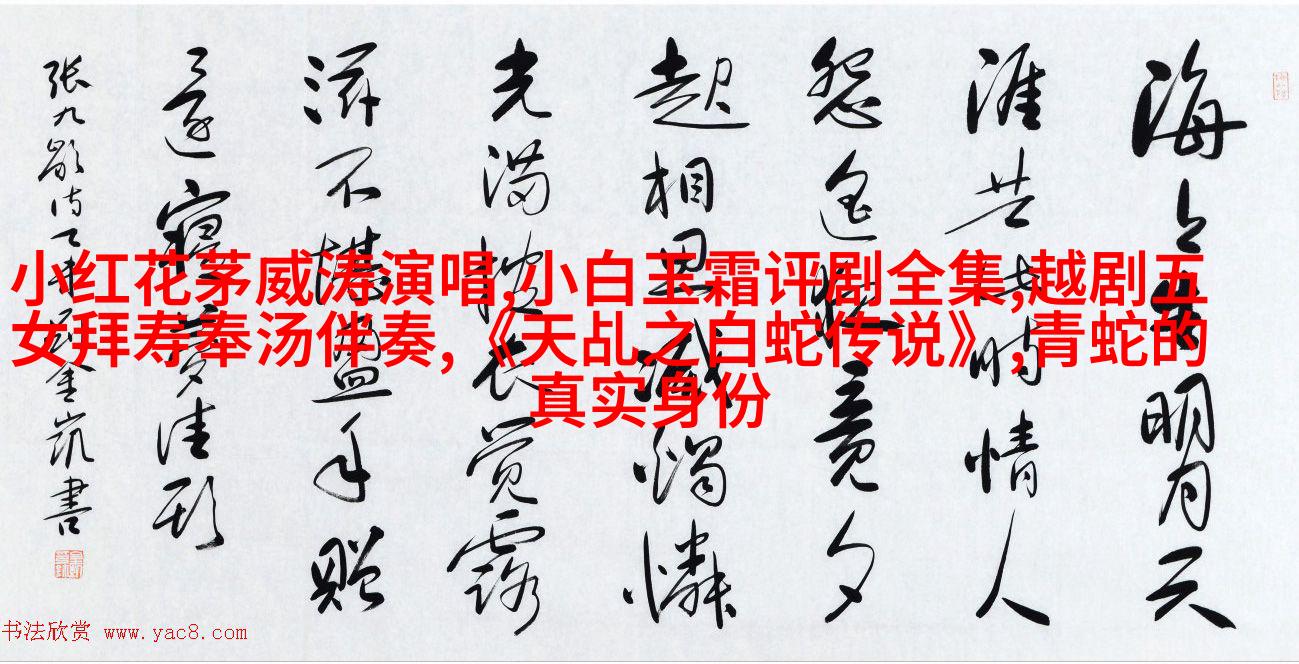 小红花茅威涛演唱,小白玉霜评剧全集,越剧五
女拜寿奉汤伴奏,《天乩之白蛇传说》,青蛇的
真实身份
海上生明月天
涯共此時情人
怨遙夜竟夕
起相思滅燭憐
光满披衣觉露
滋不堪盈手赠
還寝夢佳期
张九齡诗 金凯書
书法欣赏 www.yac8.com